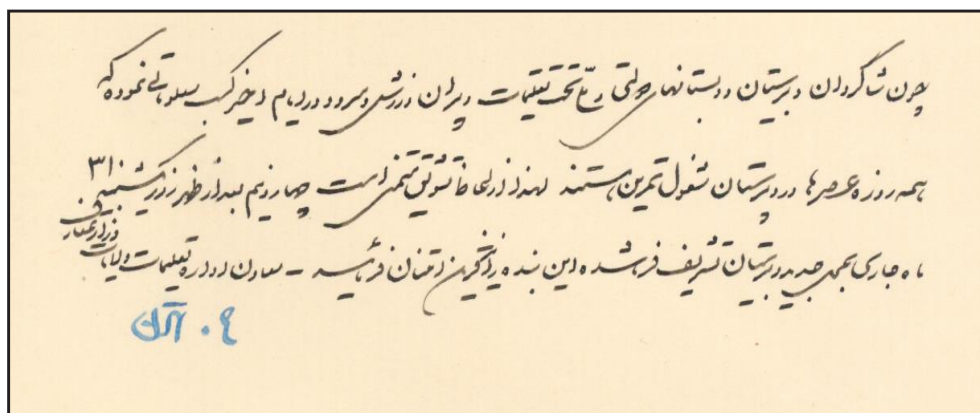 چون شاگردان دبیرستان و دبستانهای دولتی تحت تعلیمات دبیران ورزش و سرود در ایام اخیر کسب معلوماتی نموده که
همه روزه عصرها در دبیرستان مشغول تمرین هستند لهذا از لحاظ تشویق متمنی است چهار و نیم بعد از ظهر روز یکشنبه ۳۱
ماه جاری بمحل جدید دبیرستان تشریف فرما شده این بنده را قرین امتنان فرمائید – معاون اداره تعلیمات ولایات
وزارت معارف